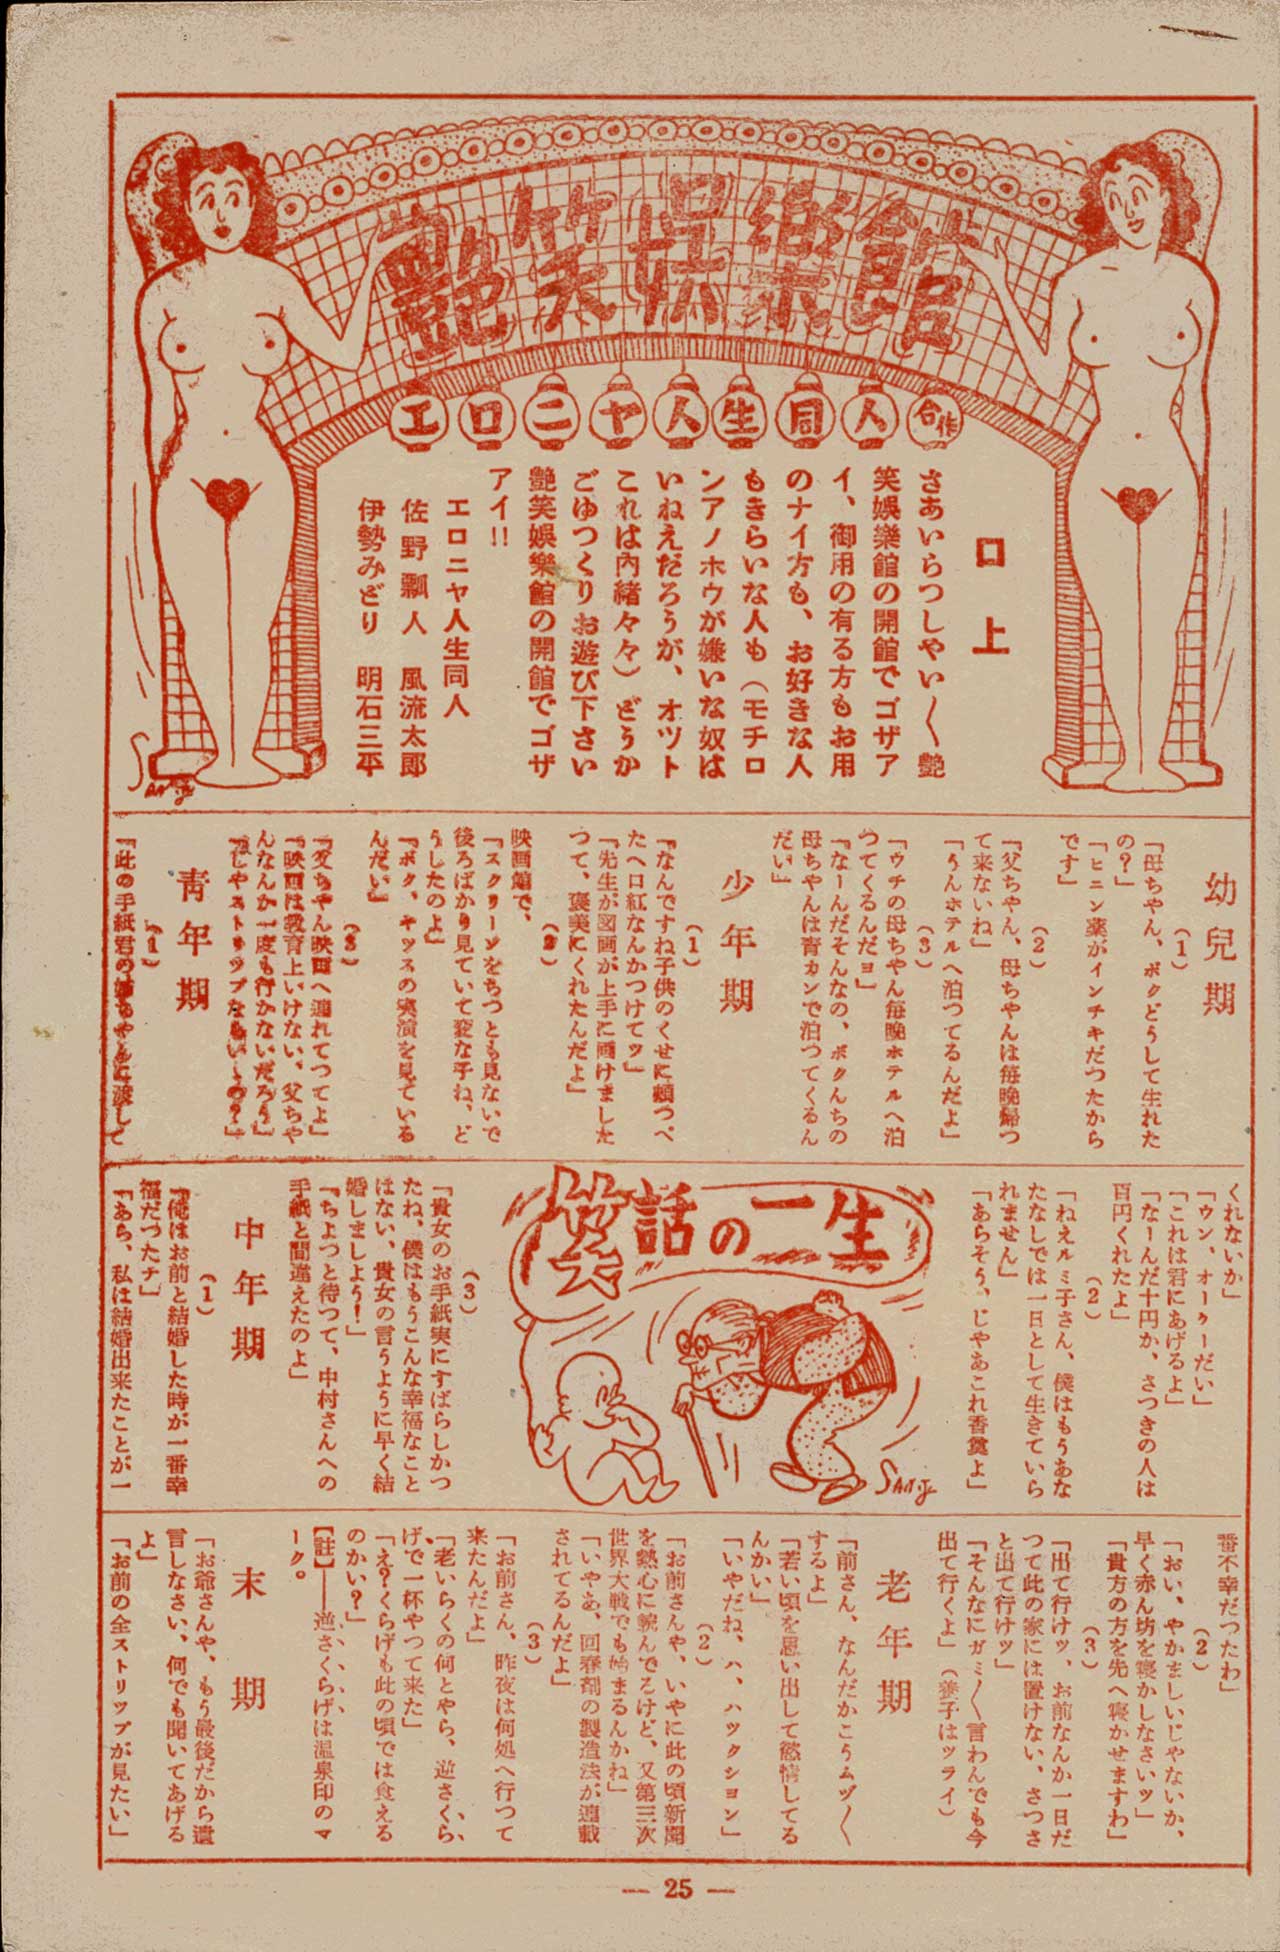 艶笑娯楽館
エロニヤ人生同人合作
口上
さあいらつしやい〳〵艶
笑娯樂館の開館でゴザア
イ、御用の有る方もお用
のナイ方も、お好きな人
もきらいな人も（モチロ
ンアノホウが嫌いな奴は
いねえだろうが、オツト
これは内緒々々）どうか
ごゆつくりお遊び下さい
艶笑娯樂館の開館でゴザ
アイ!!
エロニヤ人生同人
佐野瓢人 風流太郎
伊勢みどり 明石三平
幼兒期
(1)
「母ちやん、ボクどうして生れた
の？」
「ヒニン薬がインチキだつたから
です」
(2)
「父ちやん、母ちやんは毎晩帰つ
て来ないね」
「うんホテルへ泊つてるんだよ」
(3)
「ウチの母ちやん毎晩ホテルへ泊
つてくるんだヨ」
「なーんだそんなの、ボクんちの
母ちやんは青カンで泊つてくるん
だい」
少年期
(1)
「なんですね子供のくせに頬つぺ
たへ口紅なんかつけてッ」
「先生が図画が上手に画けました
つて、褒美にくれたんだよ」
(2)
映画館で、
「スクリーンをちつとも見ないで
後ろばかり見ていて変な子ね、ど
うしたのよ」
「ボク、キッスの実演を見ている
んだい」
(3)
「父ちやん映画へ連れてつてよ」
「映画は教育上いけない、父ちや
んなんか一度も行かないだろう」
「じやストリツプならいゝの？」
青年期
(1)
「此の手紙君の姉ちやんに渡して
くれないか」
「ウン、オーケーだい」
「これは君にあげるよ」
「なーんだ十円か、さつきの人は
百円くれたよ」
(2)
「ねえルミ子さん、僕はもうあな
たなしでは一日として生きていら
れません」
「あらそう、じやあこれ香奠よ」
笑話の一生
SANJI
(3)
「貴女のお手紙実にすばらしかつ
たね、僕はもうこんな幸福なこと
はない、貴女の言うように早く結
婚しましよう！」
「ちよつと待つて、中村さんへの
手紙と間違えたのよ」
中年期
(1)
「俺はお前と結婚した時が一番幸
福だつたナ」
「あら、私は結婚出来たことが一
番不幸だつたわ」
(2)
「おい、やかましいじやないか、
早く赤ん坊を寝かしなさいッ」
「貴方の方を先へ寝かせますわ」
(3)
「出て行けッ、お前なんか一日だ
つて此の家には置けない、さつさ
と出て行けッ」
「そんなにガミ〳〵言わんでも今
出て行くよ」（養子はツライ）
老年期
「前さん、なんだかこうムヅ〳〵
するよ」
「若い頃を思い出して慾情してる
んかい」
「いやだね、ハ、ハックション」
(2)
「お前さんや、いやに此の頃新聞
を熱心に読んでるけど、又第三次
世界大戦でも始まるんかね」
「いやあ、回春剤の製造法が連載
されてるんだよ」
(3)
「お前さん、昨夜は何処へ行つて
来たんだよ」
「老いらくの何とやら、逆さくら
げで一杯やつて来た」
「え？くらげも此の頃では食える
のかい？」
【註】―逆さくらげは温泉印のマ
ーク。
末期
「お爺さんや、もう最後だから遺
言しなさい、何でも聞いてあげる
よ」
「お前の全ストリップが見たい」
― 25 ―